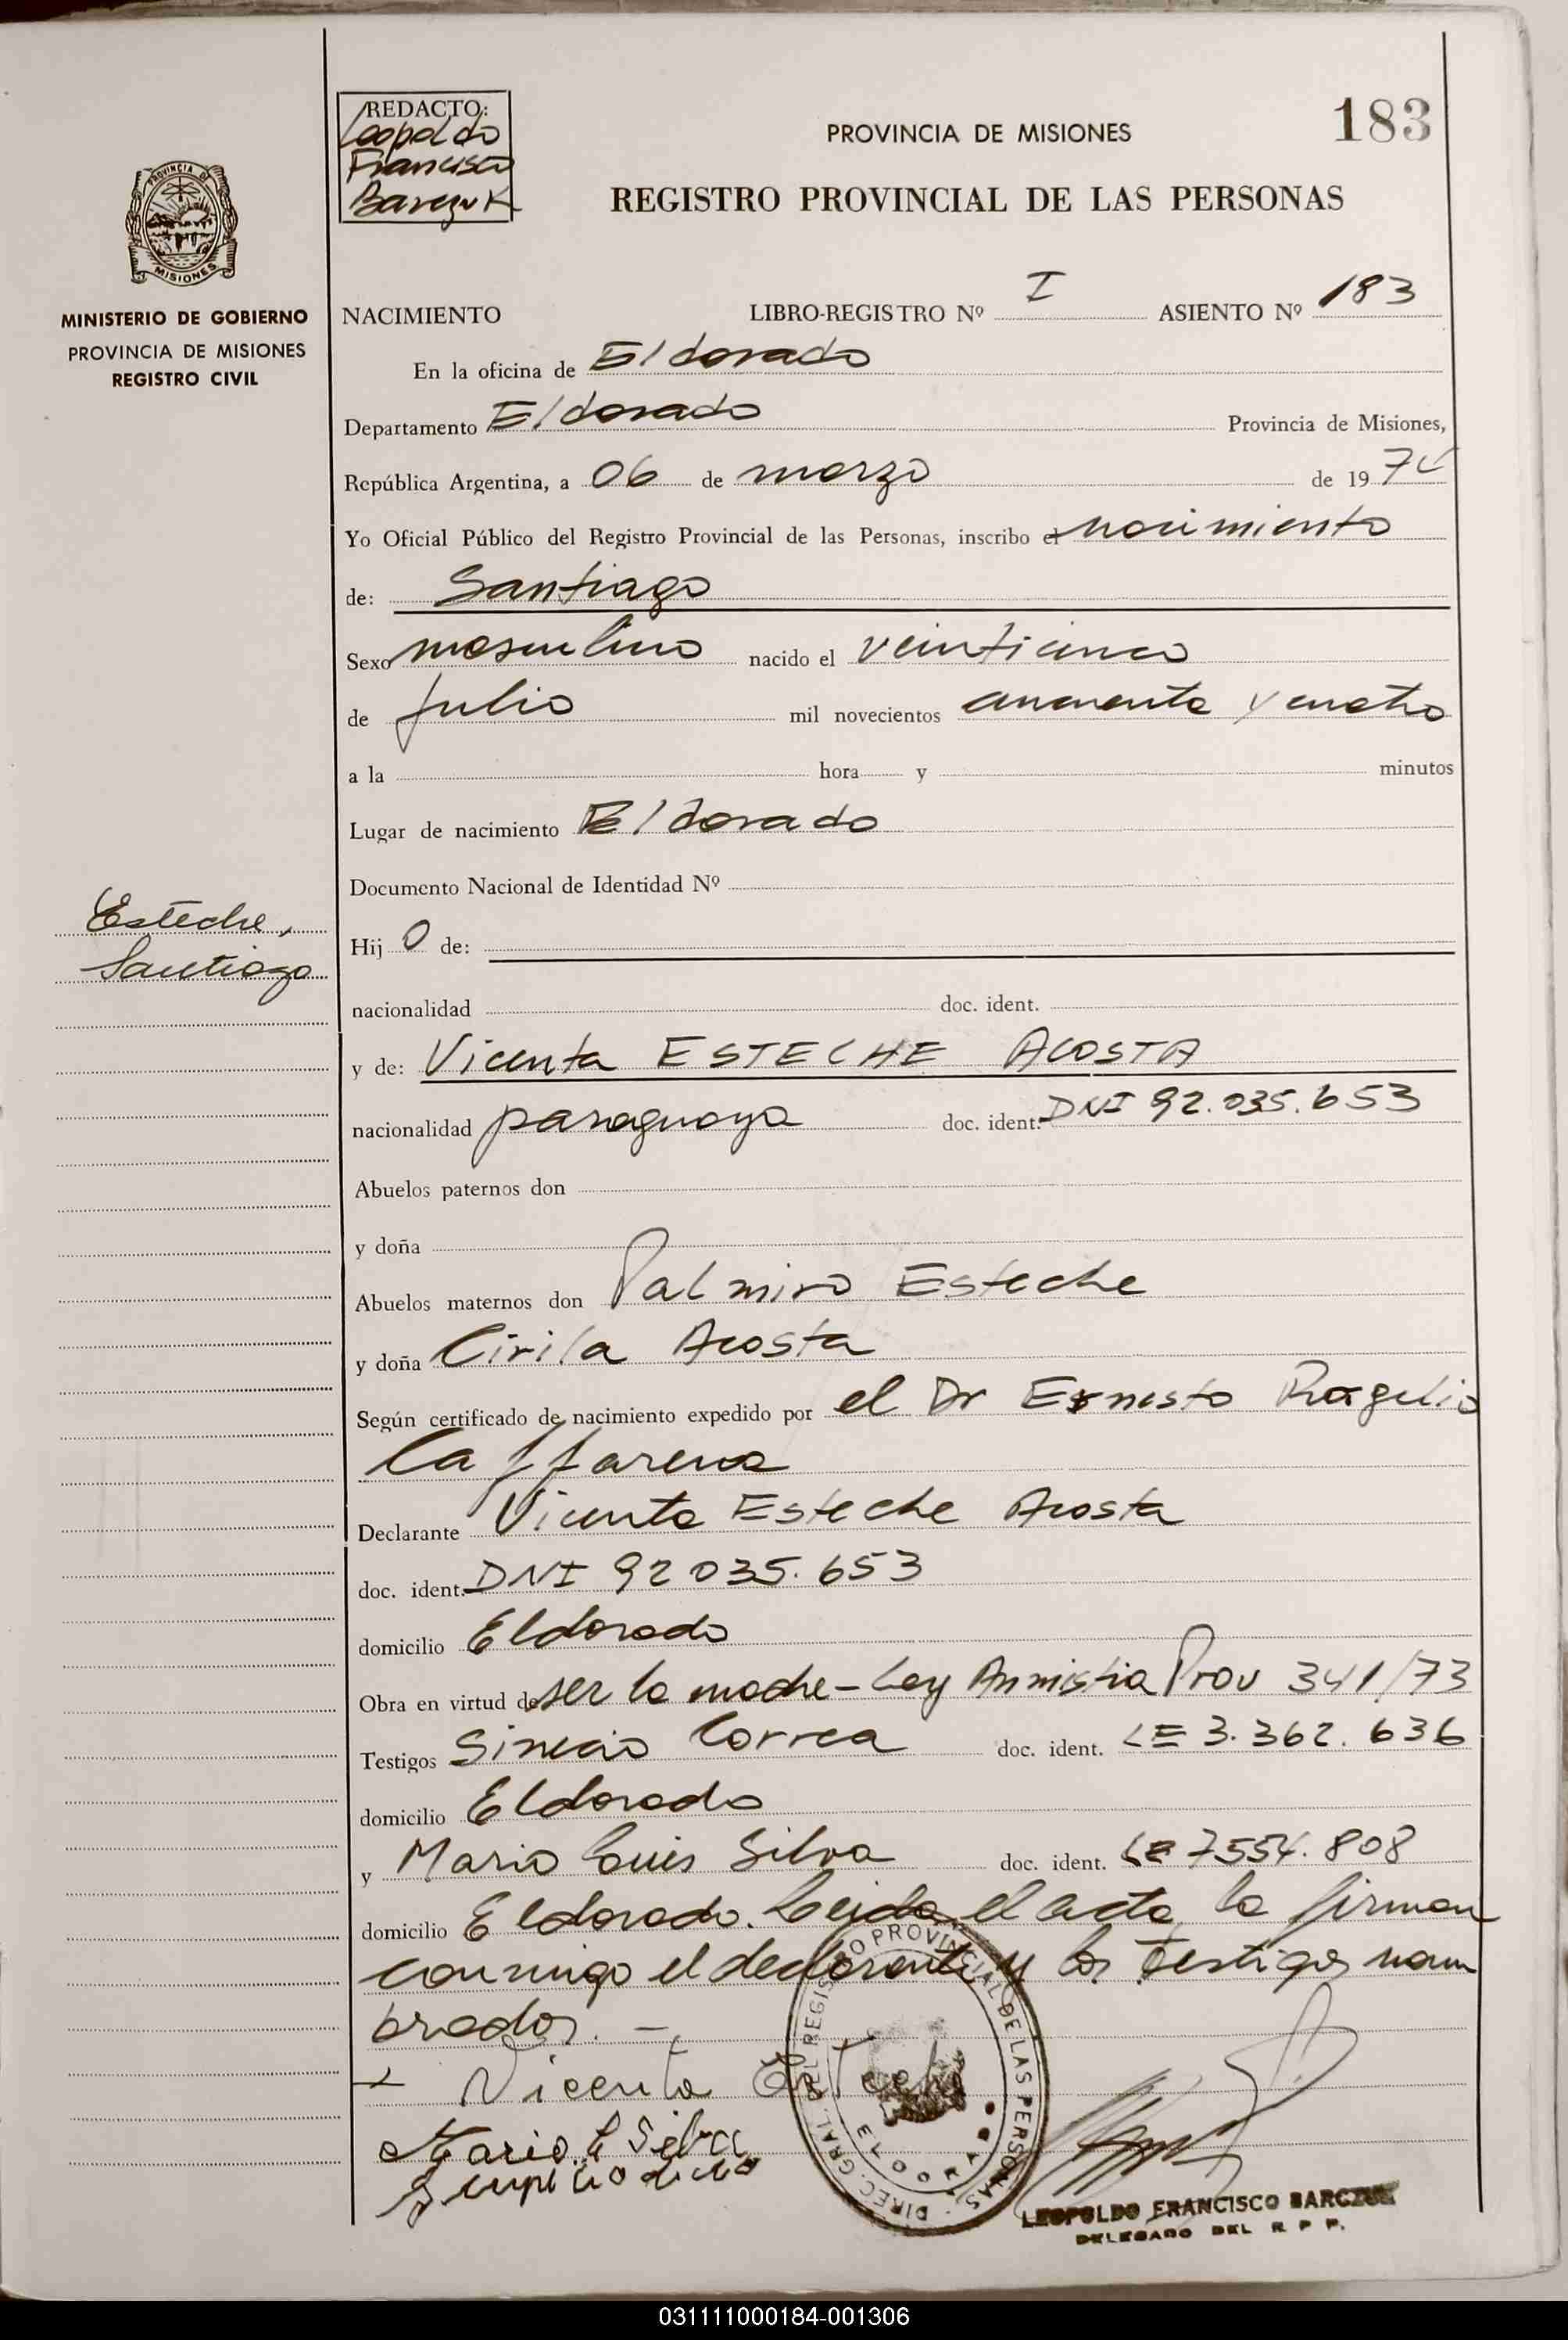 183
REDACTO:
Leopoldo
Francisco
Barczuk
PROVINCIA DE MISIONES
REGISTRO PROVINCIAL DE LAS PERSONAS
PROVINCIA DE
MISIONES
MINISTERIO DE GOBIERNO
PROVINCIA DE MISIONES
REGISTRO CIVIL
NACIMIENTO LIBRO-REGISTRO Nº I ASIENTO Nº 183
En la oficina de Eldorado
Departamento Eldorado Provincia de Misiones,
República Argentina, a 06 de marzo de 1974
Yo Oficial Público del Registro Provincial de las Personas, inscribo el nacimiento
de: Santiago
Sexo masculino nacido el veinticinco
de julio mil novecientos cuarenta y cuatro
a la hora y minutos
Lugar de nacimiento Eldorado
Documento Nacional de Identidad Nº
Esteche,
Santiago
Hijo de:
nacionalidad doc. ident.
y de: Vicenta ESTECHE ACOSTA
nacionalidad paraguaya doc. ident. DNI 92.035.653
Abuelos paternos don
y doña
Abuelos maternos don Palmiro Esteche
y doña Cirila Acosta
Según certificado de nacimiento expedido por el Dr Ernesto Rogelio
Declarante Vicenta Esteche Acosta
doc. ident. DNI 92 035.653
domicilio Eldorado
Obra en virtud de ser la madre - Ley Amnistia Prov 341/73
Testigos Correa doc. ident. LE 3.362.636
domicilio Eldorado
y Mario Luis Silva doc. ident. LE 7554.808
domicilio Eldorado. Leida el acta, la firman
conmigo el declarante y los testigos nom
brados. -
Vicenta Esteche
Mario L Silva
DIREC. GRAL. DEL REGISTRO PROVINCIAL DE LAS PERSONAS
ELDORADO
LEOPOLDO FRANCISCO BARCZUK
DELEGADO DEL R P P.
031111000184-001306